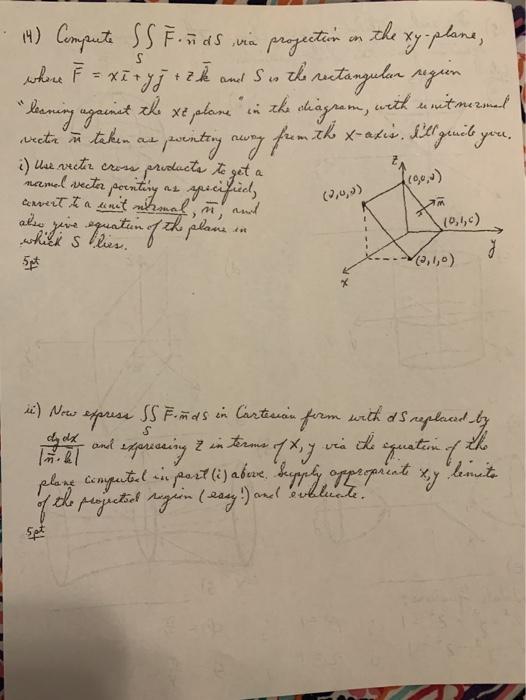 14) Compute ∬ F̄·n̄ dS via projection on the xy-plane,
S
where F̄ = xī + yj̄ + zk̄ and S is the rectangular region
"leaning against the xz plane" in the diagram, with unit normal
vector n̄ taken as pointing away from the x-axis. I'll guide you.
i) Use vector cross products to get a
normal vector pointing as specified,
convert to a unit normal, n̄, and
also give equation of the plane in
which S lies.
5pt
z
(0,0,2)
(2,0,2)
n̄
(0,1,0)
y
(2,1,0)
x
ii) Now express ∬ F̄·n̄ dS in Cartesian form with dS replaced by
S
dy dx / |n̄·k̄| and expressing z in terms of x, y via the equation of the
plane computed in part (i) above. Supply appropriate x,y limits
of the projected region (easy!) and evaluate.
5pt